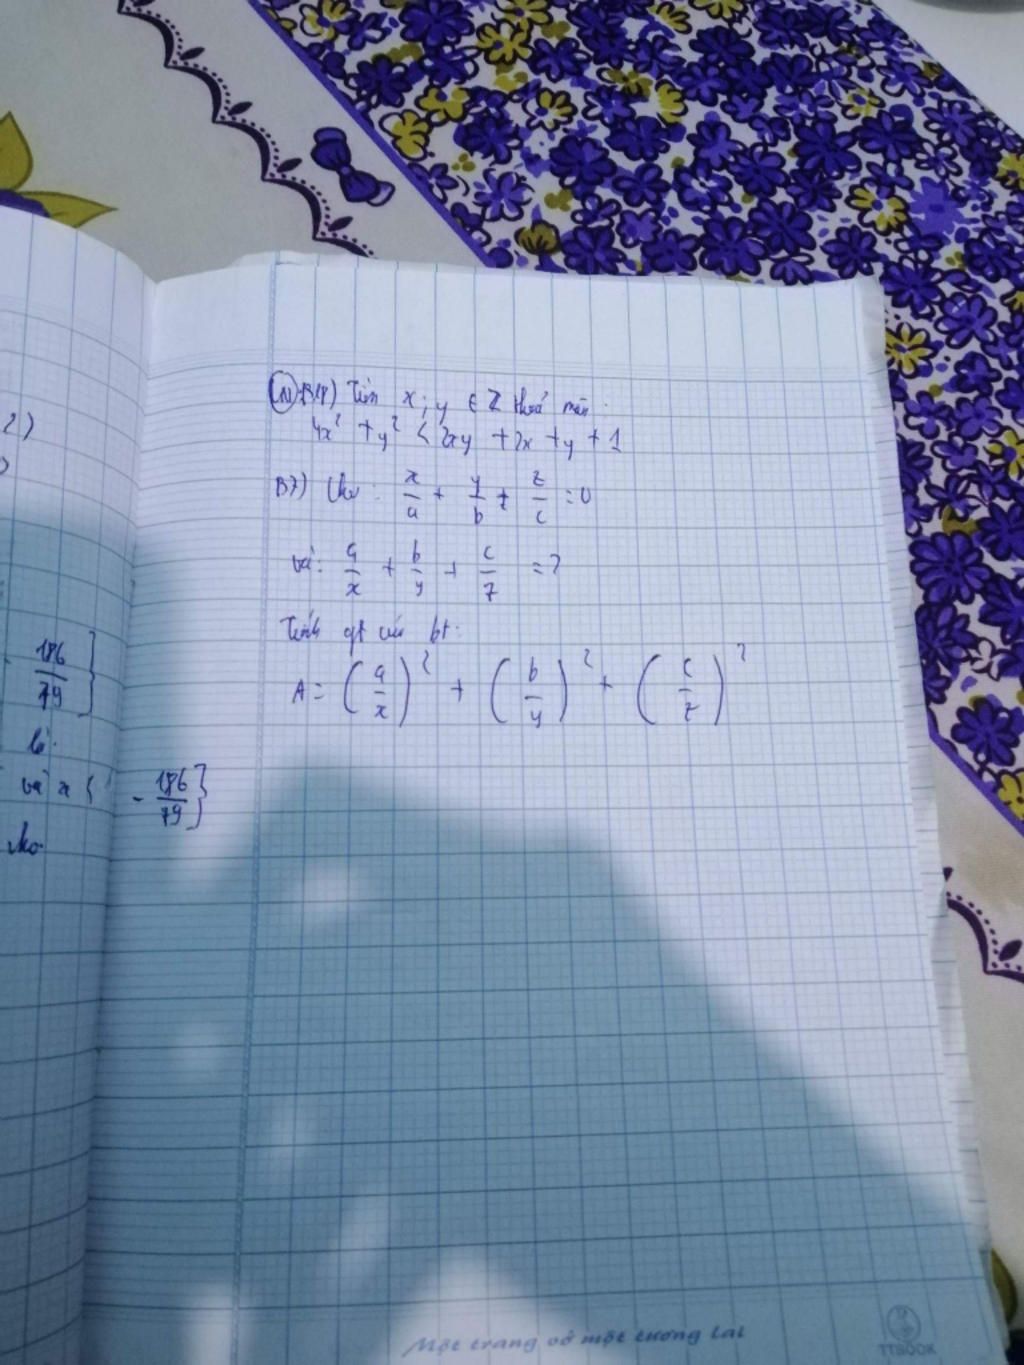 2)
186
79
là.
và x {
- 186
79 }
cho
B18) Tìm x; y ∈ Z thoả mãn:
4x² + y² < 2xy + 2x + y + 1
B7) Cho: x/a + y/b + z/c = 0
và: a/x + b/y + c/z = 2
Tính gt của bt:
A = (a/x)² + (b/y)² + (c/z)²
Một trang vở một tương lai
TTBOOK